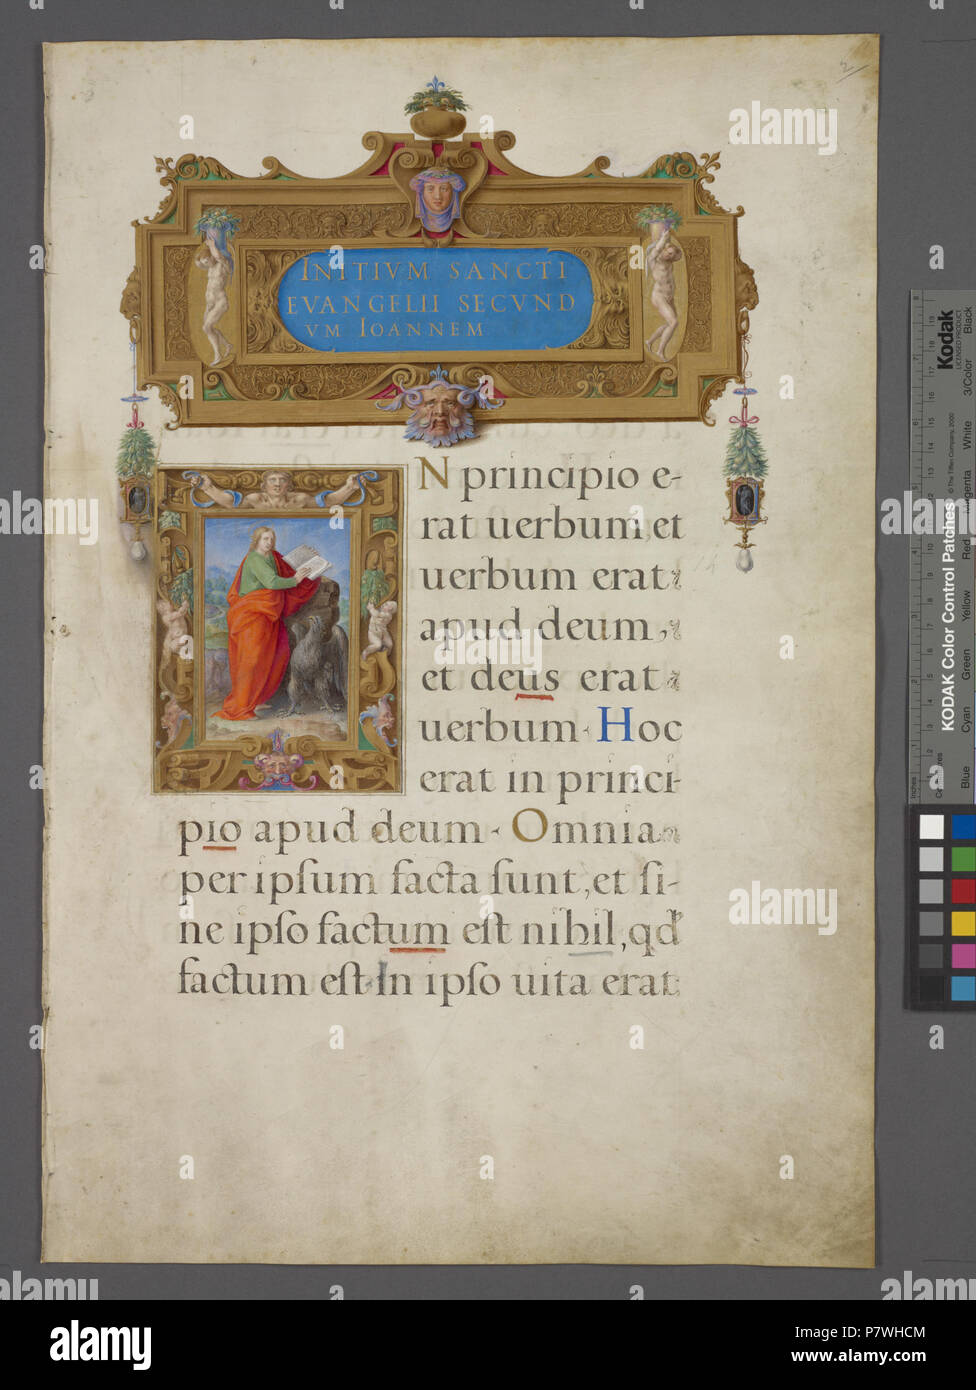 2
INITIVM SANCTI
EVANGELII SECVND
VM IOANNEM
N principio e-
rat uerbum, et
uerbum erat
apud deum,
et deus erat
uerbum. Hoc
erat in princi-
pio apud deum. Omnia
per ipsum facta sunt, et si-
ne ipso factum est nihil, qd
factum est. In ipso uita erat
14
Kodak
LICENSED PRODUCT
KODAK Color Control Patches
© The Tiffen Company, 2000
Inches
Blue
Cyan
Green
Yellow
Red
White
3/Color
Black
a alamy
alamy
Image ID: P7WHCM
www.alamy.com